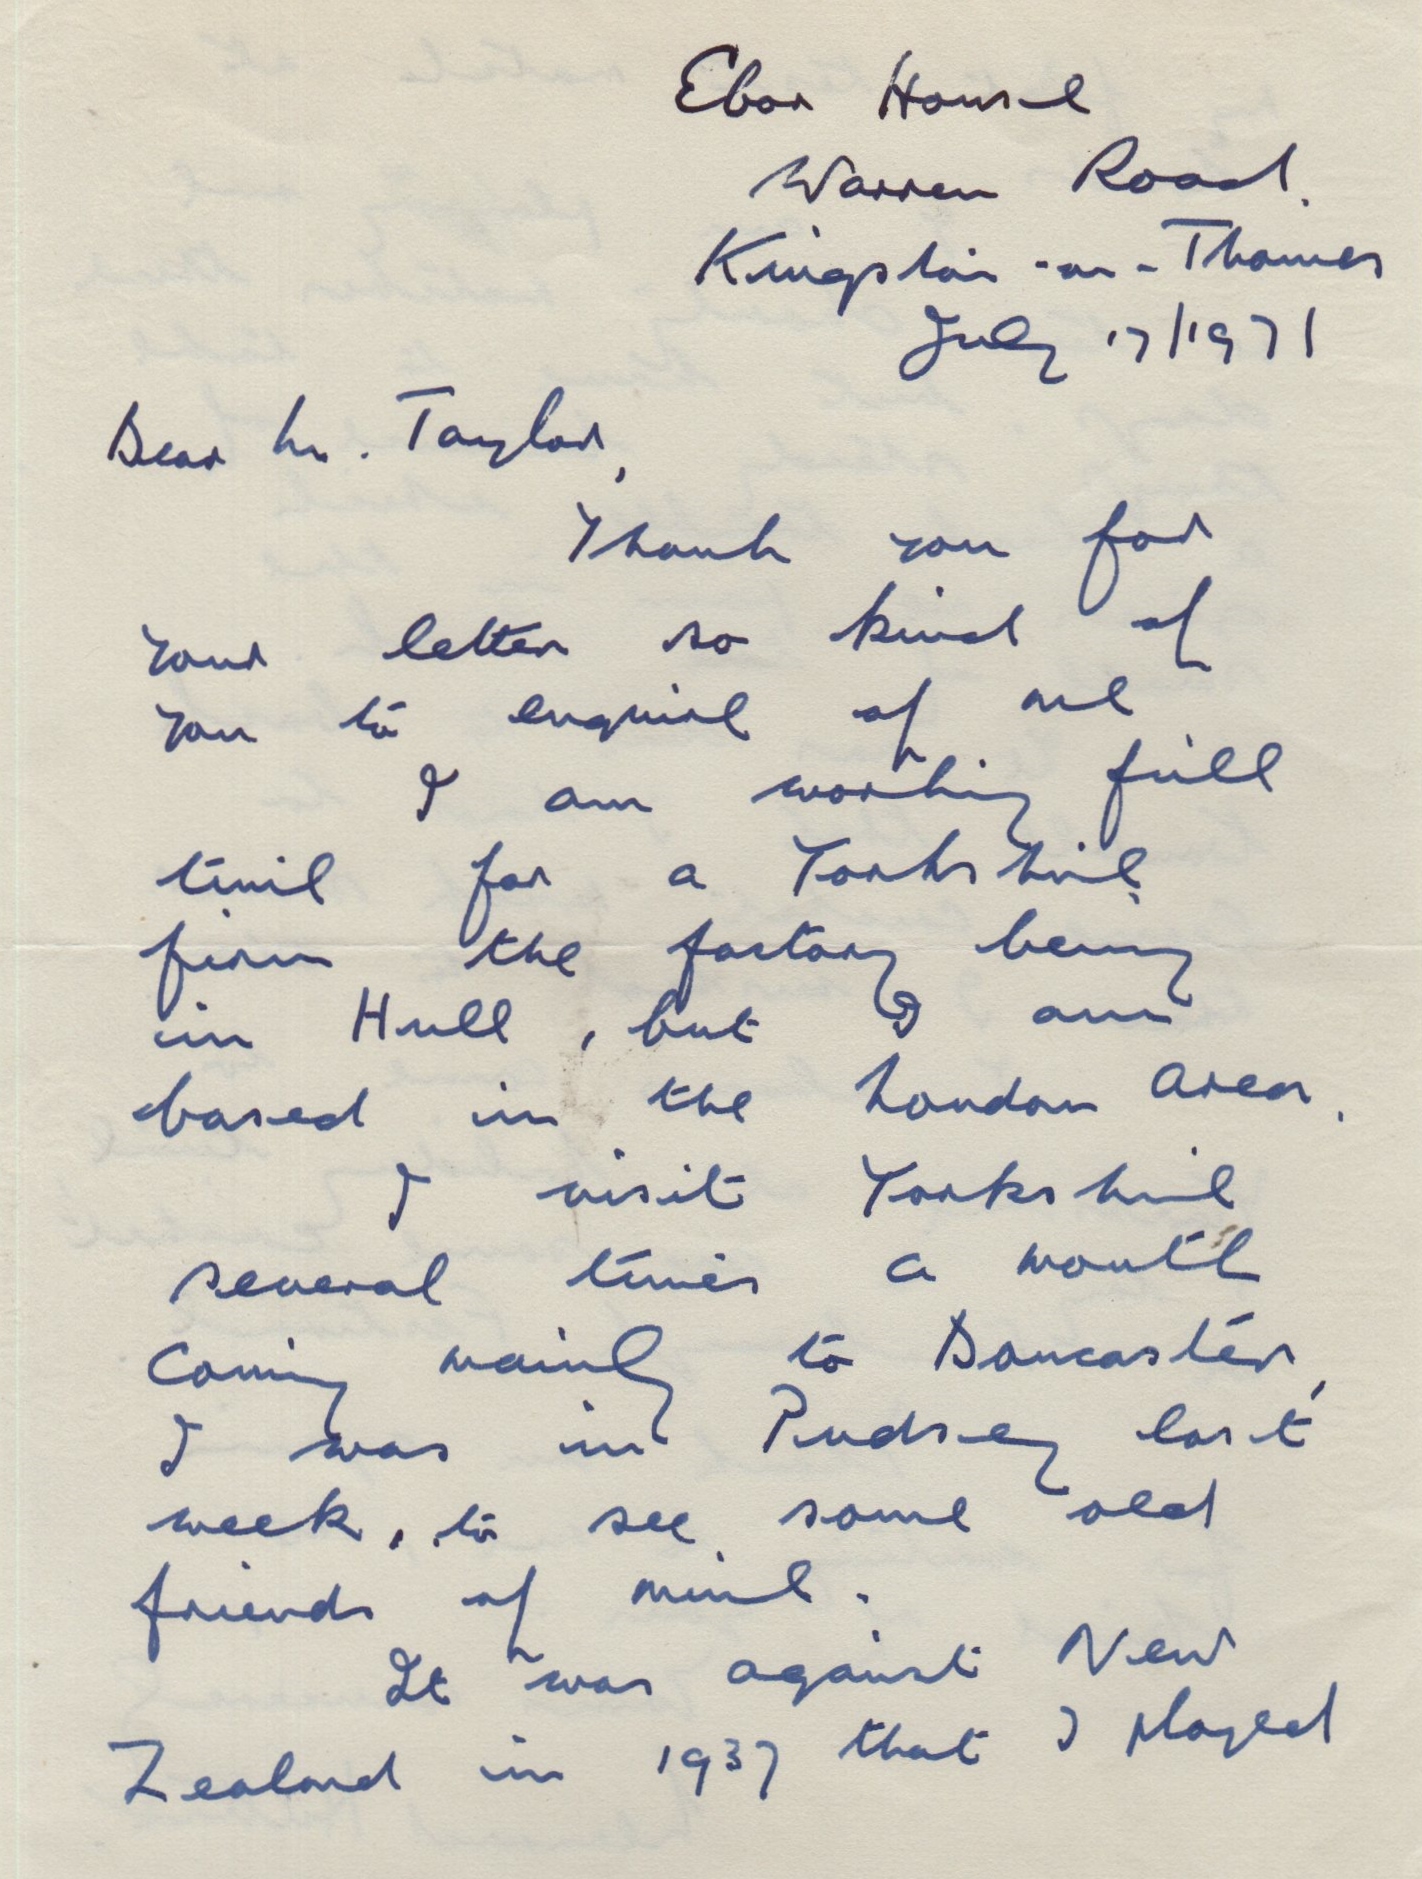 Ebor House
Warren Road.
Kingston-on-Thames
July 17/1971
Dear Mr. Taylor,
Thank you for
your letter so kind of
you to enquire of me
I am working full
time for a Yorkshire
firm the factory being
in Hull, but I am
based in the London area.
I visit Yorkshire
several times a month
coming mainly to Doncaster,
I was in Pudsey last
week, to see some old
friends of mine.
It was against New
Zealand in 1937 that I played